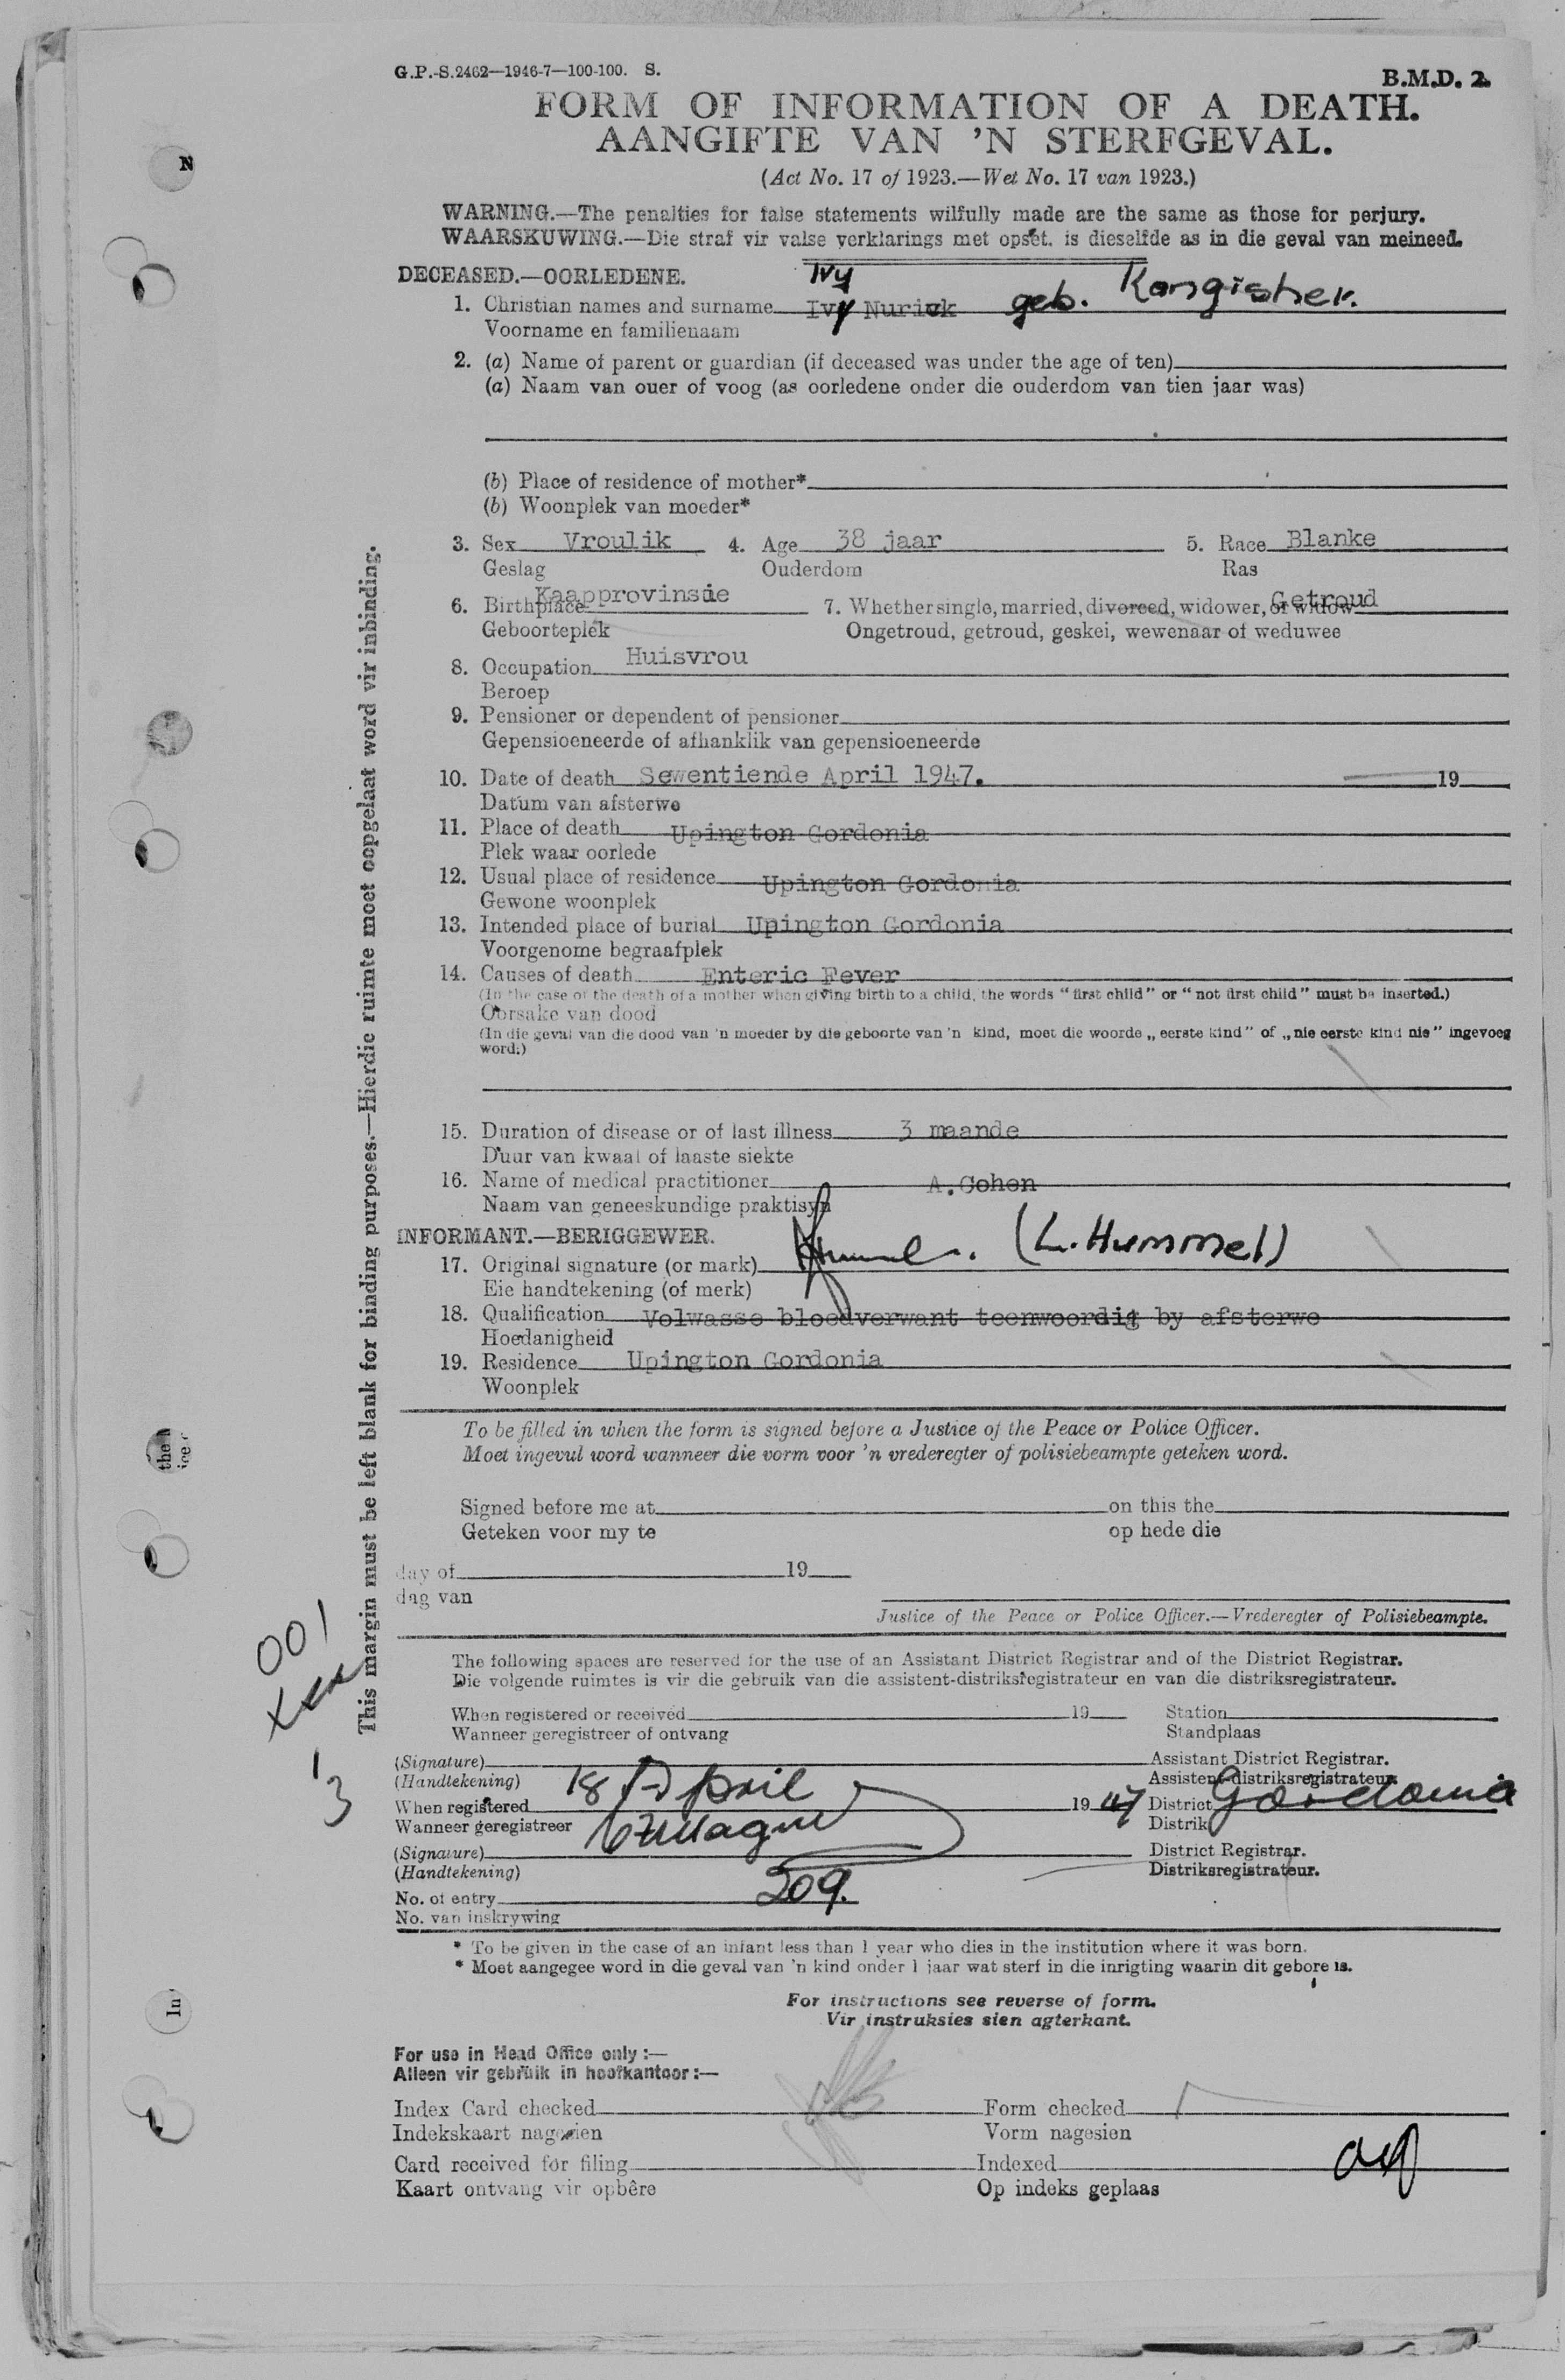 G.P.-S.2462—1946-7—100-100. S.
B.M.D. 2
FORM OF INFORMATION OF A DEATH.
AANGIFTE VAN 'N STERFGEVAL.
(Act No. 17 of 1923.—Wet No. 17 van 1923.)
WARNING.—The penalties for false statements wilfully made are the same as those for perjury.
WAARSKUWING.—Die straf vir valse verklarings met opset, is dieselfde as in die geval van meineed.
DECEASED.—OORLEDENE.
Ivy
1. Christian names and surname Ivy Nurick geb. Kangisher.
Voorname en familienaam
2. (a) Name of parent or guardian (if deceased was under the age of ten)
(a) Naam van ouer of voog (as oorledene onder die ouderdom van tien jaar was)
(b) Place of residence of mother*
(b) Woonplek van moeder*
3. Sex Vroulik 4. Age 38 jaar 5. Race Blanke
Geslag Ouderdom Ras
6. Birthplace Kaapprovinsie 7. Whether single, married, divorced, widower, or widow Getroud
Geboorteplek Ongetroud, getroud, geskei, wewenaar of weduwee
8. Occupation Huisvrou
Beroep
9. Pensioner or dependent of pensioner
Gepensioeneerde of afhanklik van gepensioeneerde
10. Date of death Sewentiende April 1947. 19
Datum van afsterwe
11. Place of death Upington Gordonia
Plek waar oorlede
12. Usual place of residence Upington Gordonia
Gewone woonplek
13. Intended place of burial Upington Gordonia
Voorgenome begraafplek
14. Causes of death Enteric Fever
(In the case of the death of a mother when giving birth to a child, the words "first child" or "not first child" must be inserted.)
Oorsake van dood
(In die geval van die dood van 'n moeder by die geboorte van 'n kind, moet die woorde „eerste kind" of „nie eerste kind nie" ingevoeg
word.)
15. Duration of disease or of last illness 3 maande
Duur van kwaal of laaste siekte
16. Name of medical practitioner A. Cohen
Naam van geneeskundige praktisyn
INFORMANT.—BERIGGEWER.
17. Original signature (or mark) (L. Hummel)
Eie handtekening (of merk)
18. Qualification Volwasse bloedverwant teenwoordig by afsterwe
Hoedanigheid
19. Residence Upington Gordonia
Woonplek
To be filled in when the form is signed before a Justice of the Peace or Police Officer.
Moet ingevul word wanneer die vorm voor 'n vrederegter of polisiebeampte geteken word.
Signed before me at on this the
Geteken voor my te op hede die
day of 19
dag van
Justice of the Peace or Police Officer.—Vrederegter of Polisiebeampte.
The following spaces are reserved for the use of an Assistant District Registrar and of the District Registrar.
Die volgende ruimtes is vir die gebruik van die assistent-distriksregistrateur en van die distriksregistrateur.
When registered or received 19 Station
Wanneer geregistreer of ontvang Standplaas
(Signature) Assistant District Registrar.
(Handtekening) Assistent-distriksregistrateur.
When registered 18 April 19 47 District Gordonia
Wanneer geregistreer Distrik
(Signature) District Registrar.
(Handtekening) Distriksregistrateur.
No. of entry 209.
No. van inskrywing
* To be given in the case of an infant less than 1 year who dies in the institution where it was born.
* Moet aangegee word in die geval van 'n kind onder 1 jaar wat sterf in die inrigting waarin dit gebore is.
For instructions see reverse of form.
Vir instruksies sien agterkant.
For use in Head Office only :—
Alleen vir gebruik in hoofkantoor :—
Index Card checked Form checked
Indekskaart nagesien Vorm nagesien
Card received for filing Indexed
Kaart ontvang vir opbêre Op indeks geplaas
This margin must be left blank for binding purposes.—Hierdie ruimte moet oopgelaat word vir inbinding.
001
1
3
N
the
In